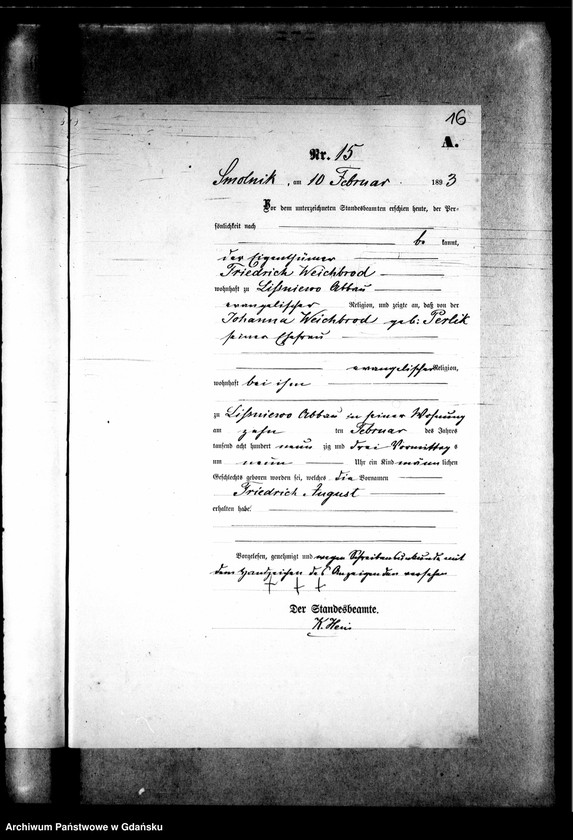 16
A.
Nr. 15
Smolnik, am 10 Februar 1893
Vor dem unterzeichneten Standesbeamten erschien heute, der Per-
sönlichkeit nach
be kannt,
der Eigenthümer
Friedrich Weichbrod
wohnhaft zu Lißniewo Abbau
evangelischer Religion, und zeigte an, daß von der
Johanna Weichbrod geb: Perlik
seiner Ehefrau
evangelischer Religion,
wohnhaft bei ihm
zu Lißniewo Abbau in seiner Wohnung
am zehn ten Februar des Jahres
tausend acht hundert neun zig und drei Vormittag s
um neun Uhr ein Kind männ lichen
Geschlechts geboren worden sei, welches die Vornamen
Friedrich August
erhalten habe.
Vorgelesen, genehmigt und wegen Schreibensunkunde mit
dem Handzeichen des Anzeigenden versehen
+ + +
Der Standesbeamte.
K. Hein
Archiwum Państwowe w Gdańsku